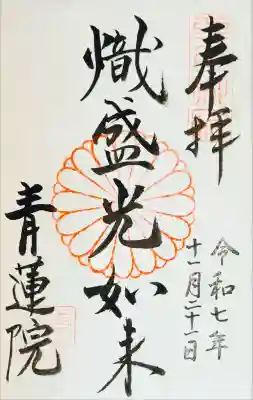 奉拝
令和七年
十一月二十一日
熾盛光如来
青蓮院